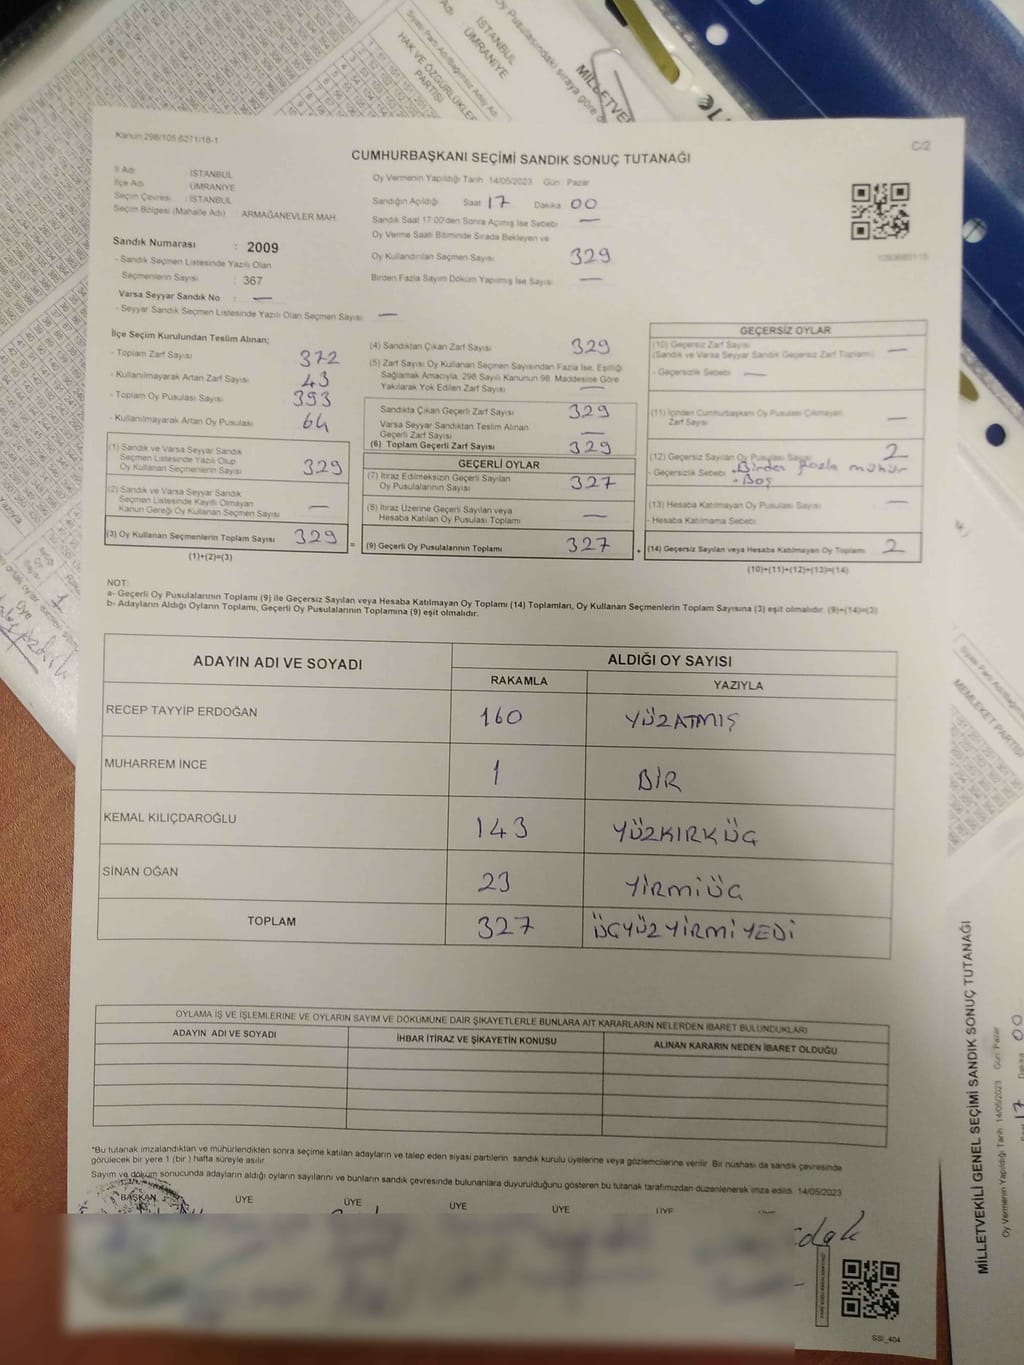 Kanun:298/105.6271/18-1
C/2
CUMHURBAŞKANI SEÇİMİ SANDIK SONUÇ TUTANAĞI
İl Adı : İSTANBUL
İlçe Adı : ÜMRANİYE
Seçim Çevresi : İSTANBUL
Seçim Bölgesi (Mahalle Adı) ARMAĞANEVLER MAH.
Sandık Numarası : 2009
- Sandık Seçmen Listesinde Yazılı Olan
Seçmenlerin Sayısı : 367
Varsa Seyyar Sandık No : —
- Seyyar Sandık Seçmen Listesinde Yazılı Olan Seçmen Sayısı —
Oy Vermenin Yapıldığı Tarih 14/05/2023 Gün: Pazar
Sandığın Açıldığı Saat 17 Dakika 00
Sandık Saat 17:00'den Sonra Açımış İse Sebebi —
Oy Verme Saati Bitiminde Sırada Bekleyen ve
Oy Kullandırılan Seçmen Sayısı 329
Birden Fazla Sayım Döküm Yapılmış İse Sayısı —
İlçe Seçim Kurulundan Teslim Alınan;
- Toplam Zarf Sayısı 372
- Kullanılmayarak Artan Zarf Sayısı 43
- Toplam Oy Pusulası Sayısı 393
- Kullanılmayarak Artan Oy Pusulası 64
(1) Sandık ve Varsa Seyyar Sandık
Seçmen Listesinde Yazılı Olup
Oy Kullanan Seçmenlerin Sayısı 329
(2) Sandık ve Varsa Seyyar Sandık
Seçmen Listesinde Kayıtlı Olmayan
Kanun Gereği Oy Kullanan Seçmen Sayısı —
(3) Oy Kullanan Seçmenlerin Toplam Sayısı 329
(1)+(2)=(3)
(4) Sandıktan Çıkan Zarf Sayısı 329
(5) Zarf Sayısı Oy Kullanan Seçmen Sayısından Fazla İse, Eşitliği
Sağlamak Amacıyla, 298 Sayılı Kanunun 98. Maddesine Göre
Yakılarak Yok Edilen Zarf Sayısı —
Sandıkta Çıkan Geçerli Zarf Sayısı 329
Varsa Seyyar Sandıktan Teslim Alınan
Geçerli Zarf Sayısı —
(6) Toplam Geçerli Zarf Sayısı 329
GEÇERLİ OYLAR
(7) İtiraz Edilmeksizin Geçerli Sayılan
Oy Pusulalarının Sayısı 327
(8) İtiraz Üzerine Geçerli Sayılan veya
Hesaba Katılan Oy Pusulası Toplamı —
= (9) Geçerli Oy Pusulalarının Toplamı 327
GEÇERSİZ OYLAR
(10) Geçersiz Zarf Sayısı
(Sandık ve Varsa Seyyar Sandık Geçersiz Zarf Toplamı) —
- Geçersizlik Sebebi —
(11) İçinden Cumhurbaşkanı Oy Pusulası Çıkmayan
Zarf Sayısı —
(12) Geçersiz Sayılan Oy Pusulası Sayısı 2
- Geçersizlik Sebebi • Birden fazla mühür
• Boş
(13) Hesaba Katılmayan Oy Pusulası Sayısı —
- Hesaba Katılmama Sebebi
+ (14) Geçersiz Sayılan veya Hesaba Katılmayan Oy Toplamı 2
(10)+(11)+(12)+(13)=(14)
NOT:
a- Geçerli Oy Pusulalarının Toplamı (9) ile Geçersiz Sayılan veya Hesaba Katılmayan Oy Toplamı (14) Toplamları, Oy Kullanan Seçmenlerin Toplam Sayısına (3) eşit olmalıdır. (9)+(14)=(3)
b- Adayların Aldığı Oyların Toplamı, Geçerli Oy Pusulalarının Toplamına (9) eşit olmalıdır.
ADAYIN ADI VE SOYADI ALDIĞI OY SAYISI
RAKAMLA YAZIYLA
RECEP TAYYİP ERDOĞAN 160 YÜZATMIŞ
MUHARREM İNCE 1 BİR
KEMAL KILIÇDAROĞLU 143 YÜZKIRKÜÇ
SİNAN OĞAN 23 YİRMİÜÇ
TOPLAM 327 ÜÇYÜZYİRMİYEDİ
OYLAMA İŞ VE İŞLEMLERİNE VE OYLARIN SAYIM VE DÖKÜMÜNE DAİR ŞİKAYETLERLE BUNLARA AİT KARARLARIN NELERDEN İBARET BULUNDUKLARI
ADAYIN ADI VE SOYADI İHBAR İTİRAZ VE ŞİKAYETİN KONUSU ALINAN KARARIN NEDEN İBARET OLDUĞU
*Bu tutanak imzalandıktan ve mühürlendikten sonra seçime katılan adayların ve talep eden siyasi partilerin sandık kurulu üyelerine veya gözlemcilerine verilir. Bir nüshası da sandık çevresinde
görülecek bir yere 1 (bir) hafta süreyle asılır
Sayım ve döküm sonucunda adayların aldığı oyların sayılarını ve bunların sandık çevresinde bulunanlara duyurulduğunu gösteren bu tutanak tarafımızdan düzenlenerek imza edildi. 14/05/2023
BAŞKAN ÜYE ÜYE ÜYE ÜYE ÜYE
SSI_404
İSTANBUL
ÜMRANİYE
HAK VE ÖZGÜRLÜKLER
PARTİSİ
Oy Pusulasındaki sıraya göre
MİLLETVE
Üye
MEMLEKET PARTİSİ
MİLLETVEKİLİ GENEL SEÇİMİ SANDIK SONUÇ TUTANAĞI
Oy Vermenin Yapıldığı Tarih 14/05/2023 Gün: Pazar
17 Dakika 00